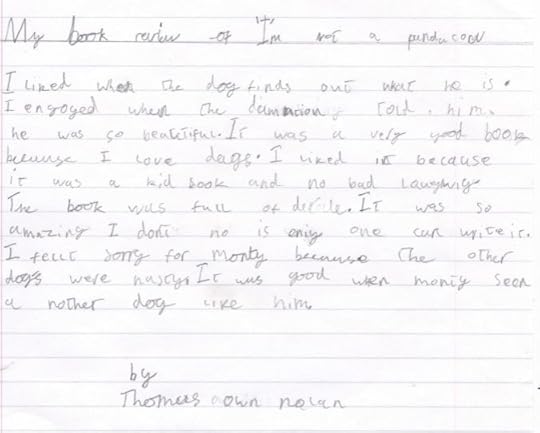 My book review of "I'm not a panducoov
I liked when the dog finds out what he is.
I engoyed when the damation told him.
he was so beateiful. It was a very good book
becuase I love dogs. I liked it because
it was a kid book and no bad laungwig
The book was full of
It was so
amazing I dont no is eny one can write it.
I feut sorry for monty because the other
dogs were nasty. It was good when monty seen
a nother dog like him.
by
Thomas nolan